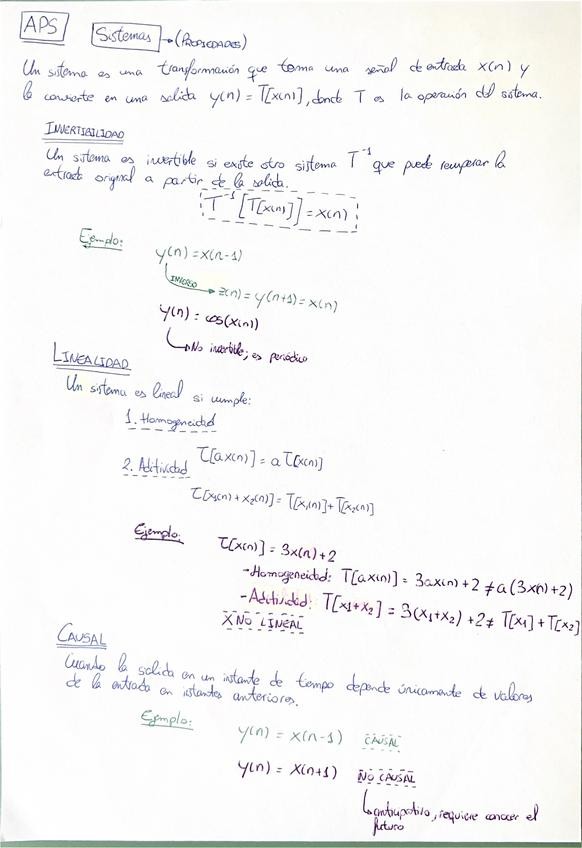 APS Sistemas → (PROPIEDADES)
Un sistema es una transformación que toma una señal de entrada x(n) y
lo convierte en una salida y(n) = T[x(n)], donde T es la operación del sistema.
INVERTIBILIDAD
Un sistema es invertible si existe otro sistema T⁻¹ que puede recuperar la
entrada original a partir de la salida.
T⁻¹[T[x(n)]] = x(n)
Ejemplo: y(n) = x(n-1)
INVERSO → z(n) = y(n+1) = x(n)
y(n) = cos(x(n))
↳ No invertible; es periódico
LINEALIDAD
Un sistema es lineal si cumple:
1. Homogeneidad
T[ax(n)] = a T[x(n)]
2. Aditividad
T[x₁(n) + x₂(n)] = T[x₁(n)] + T[x₂(n)]
Ejemplo: T[x(n)] = 3x(n) + 2
- Homogeneidad: T[ax(n)] = 3ax(n) + 2 ≠ a(3x(n) + 2)
- Aditividad: T[x₁ + x₂] = 3(x₁ + x₂) + 2 ≠ T[x₁] + T[x₂]
X NO LINEAL
CAUSAL
Cuando la salida en un instante de tiempo depende únicamente de valores
de la entrada en istantes anteriores.
Ejemplo: y(n) = x(n-1) CAUSAL
y(n) = x(n+1) NO CAUSAL
↳ anticipativo, requiere conocer el
futuro